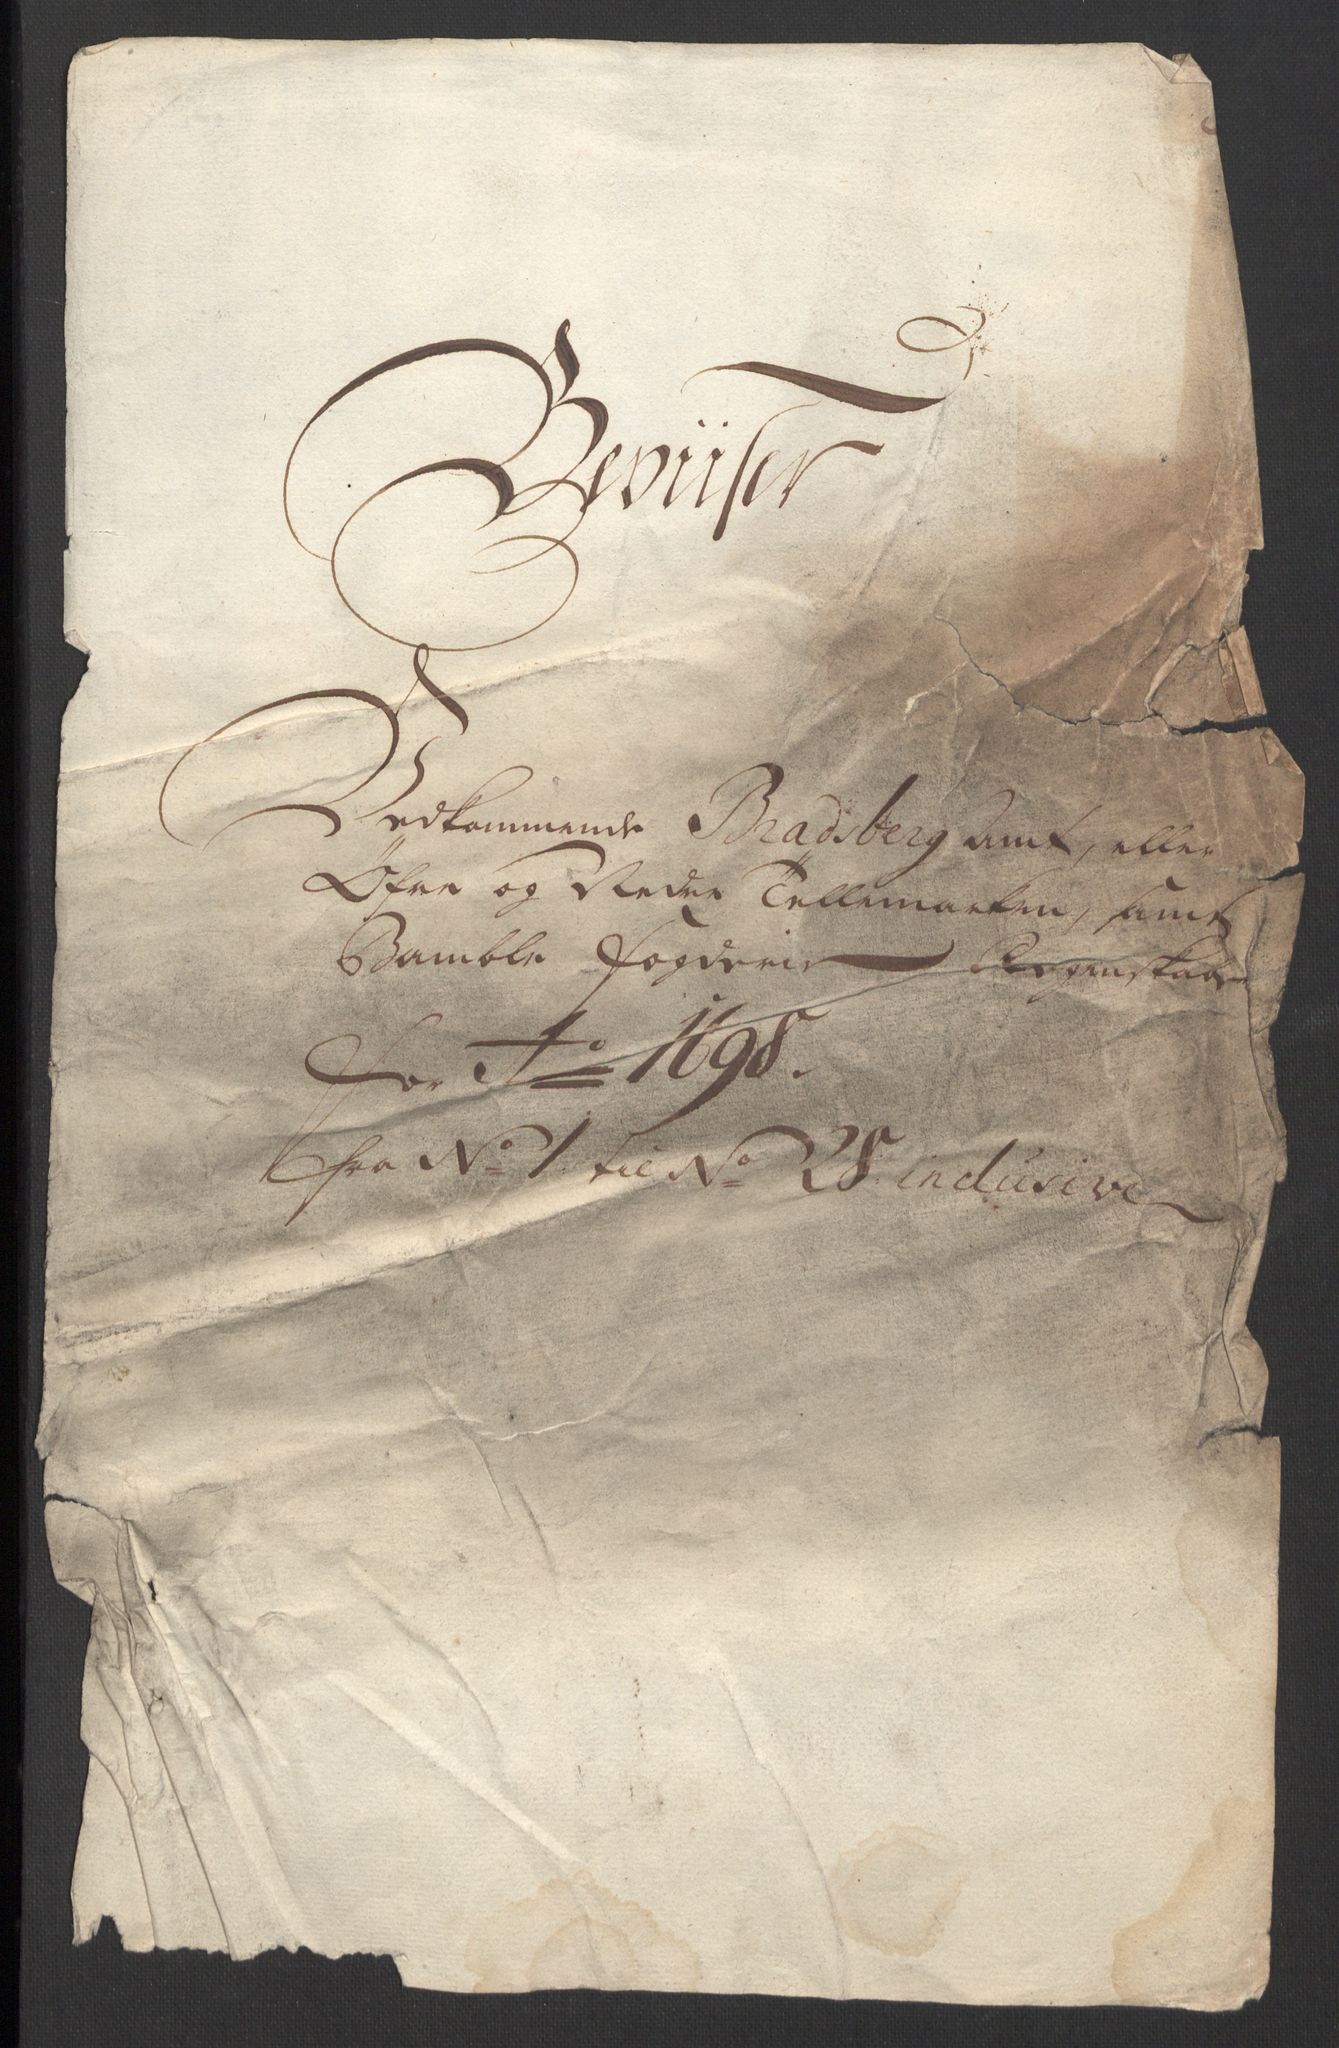 Beviiser
Vedkommende Bradsberg Amt, eller
Øfre og Nedre Tellemarken, samt
Bamble Fogderie Regenskab
for Ao 1698.
fra No 1. til No 28. inclusive